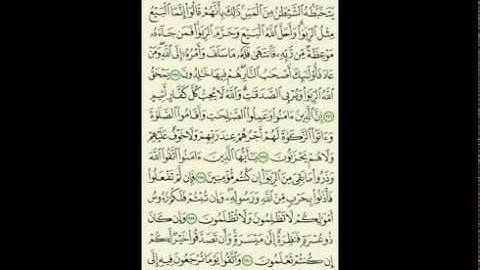 يَتَخَبَّطُهُ ٱلشَّيْطَٰنُ مِنَ ٱلْمَسِّ ذَٰلِكَ بِأَنَّهُمْ قَالُوٓا۟ إِنَّمَا ٱلْبَيْعُ
مِثْلُ ٱلرِّبَوٰا۟ وَأَحَلَّ ٱللَّهُ ٱلْبَيْعَ وَحَرَّمَ ٱلرِّبَوٰا۟ فَمَن جَآءَهُۥ
مَوْعِظَةٌ مِّن رَّبِّهِۦ فَٱنتَهَىٰ فَلَهُۥ مَا سَلَفَ وَأَمْرُهُۥٓ إِلَى ٱللَّهِ وَمَنْ
عَادَ فَأُو۟لَٰٓئِكَ أَصْحَٰبُ ٱلنَّارِ هُمْ فِيهَا خَٰلِدُونَ ٢٧٥ يَمْحَقُ
ٱللَّهُ ٱلرِّبَوٰا۟ وَيُرْبِى ٱلصَّدَقَٰتِ وَٱللَّهُ لَا يُحِبُّ كُلَّ كَفَّارٍ أَثِيمٍ
٢٧٦ إِنَّ ٱلَّذِينَ ءَامَنُوا۟ وَعَمِلُوا۟ ٱلصَّٰلِحَٰتِ وَأَقَامُوا۟ ٱلصَّلَوٰةَ
وَءَاتَوُا۟ ٱلزَّكَوٰةَ لَهُمْ أَجْرُهُمْ عِندَ رَبِّهِمْ وَلَا خَوْفٌ عَلَيْهِمْ
وَلَا هُمْ يَحْزَنُونَ ٢٧٧ يَٰٓأَيُّهَا ٱلَّذِينَ ءَامَنُوا۟ ٱتَّقُوا۟ ٱللَّهَ
وَذَرُوا۟ مَا بَقِىَ مِنَ ٱلرِّبَوٰٓا۟ إِن كُنتُم مُّؤْمِنِينَ ٢٧٨ فَإِن لَّمْ تَفْعَلُوا۟
فَأْذَنُوا۟ بِحَرْبٍ مِّنَ ٱللَّهِ وَرَسُولِهِۦ وَإِن تُبْتُمْ فَلَكُمْ رُءُوسُ
أَمْوَٰلِكُمْ لَا تَظْلِمُونَ وَلَا تُظْلَمُونَ ٢٧٩ وَإِن كَانَ
ذُو عُسْرَةٍ فَنَظِرَةٌ إِلَىٰ مَيْسَرَةٍ وَأَن تَصَدَّقُوا۟ خَيْرٌ لَّكُمْ
إِن كُنتُمْ تَعْلَمُونَ ٢٨٠ وَٱتَّقُوا۟ يَوْمًا تُرْجَعُونَ فِيهِ إِلَى